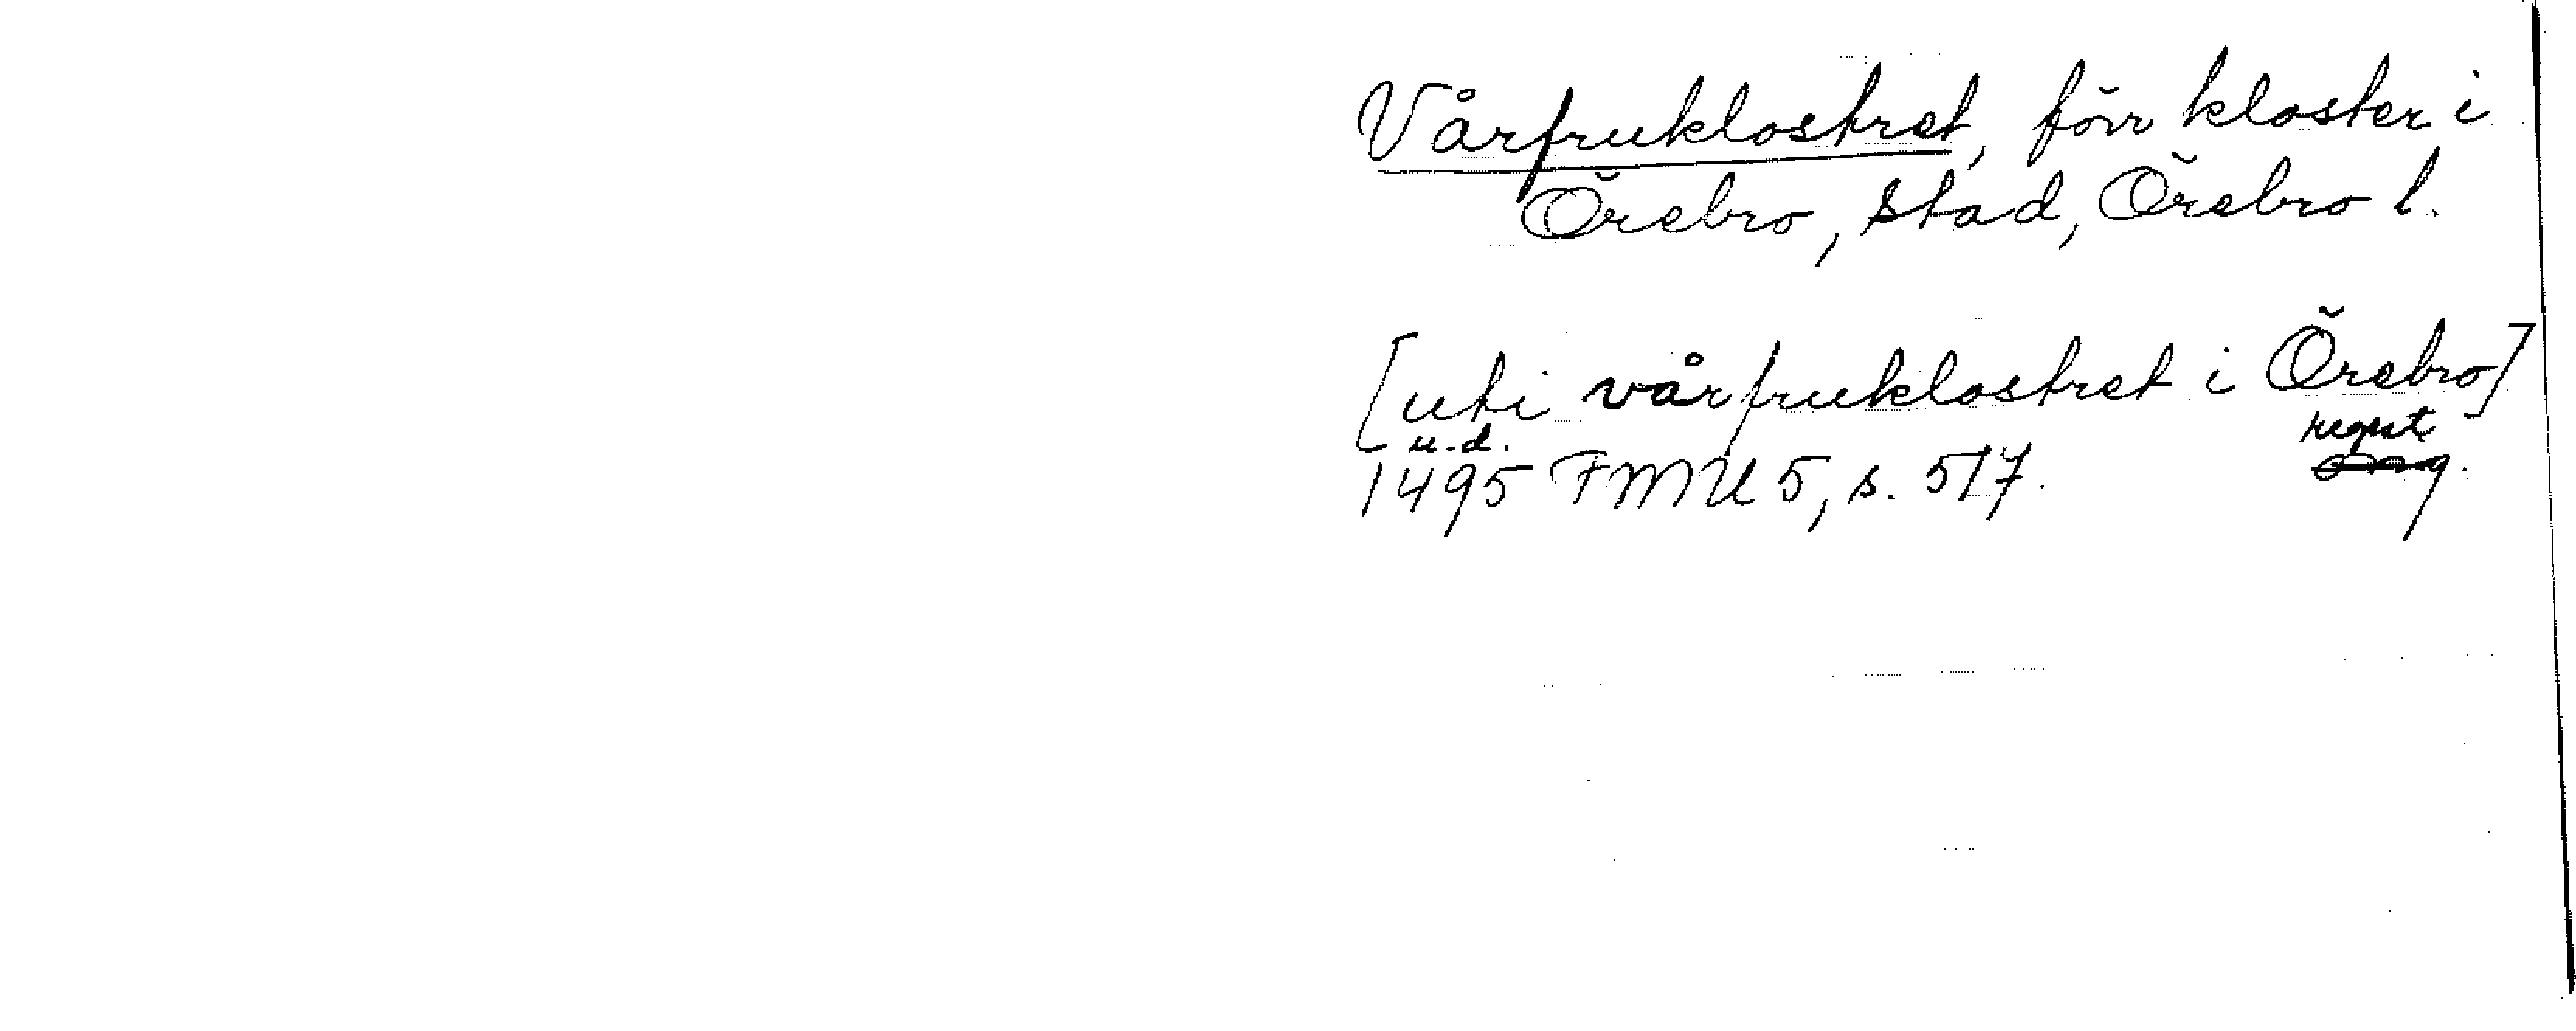 Vårfruklostret, förr kloster i
Örebro, stad, Örebro l.
[uti vårfruklostret i Örebro]
u.d. regest
1495 FMU 5, s. 517.